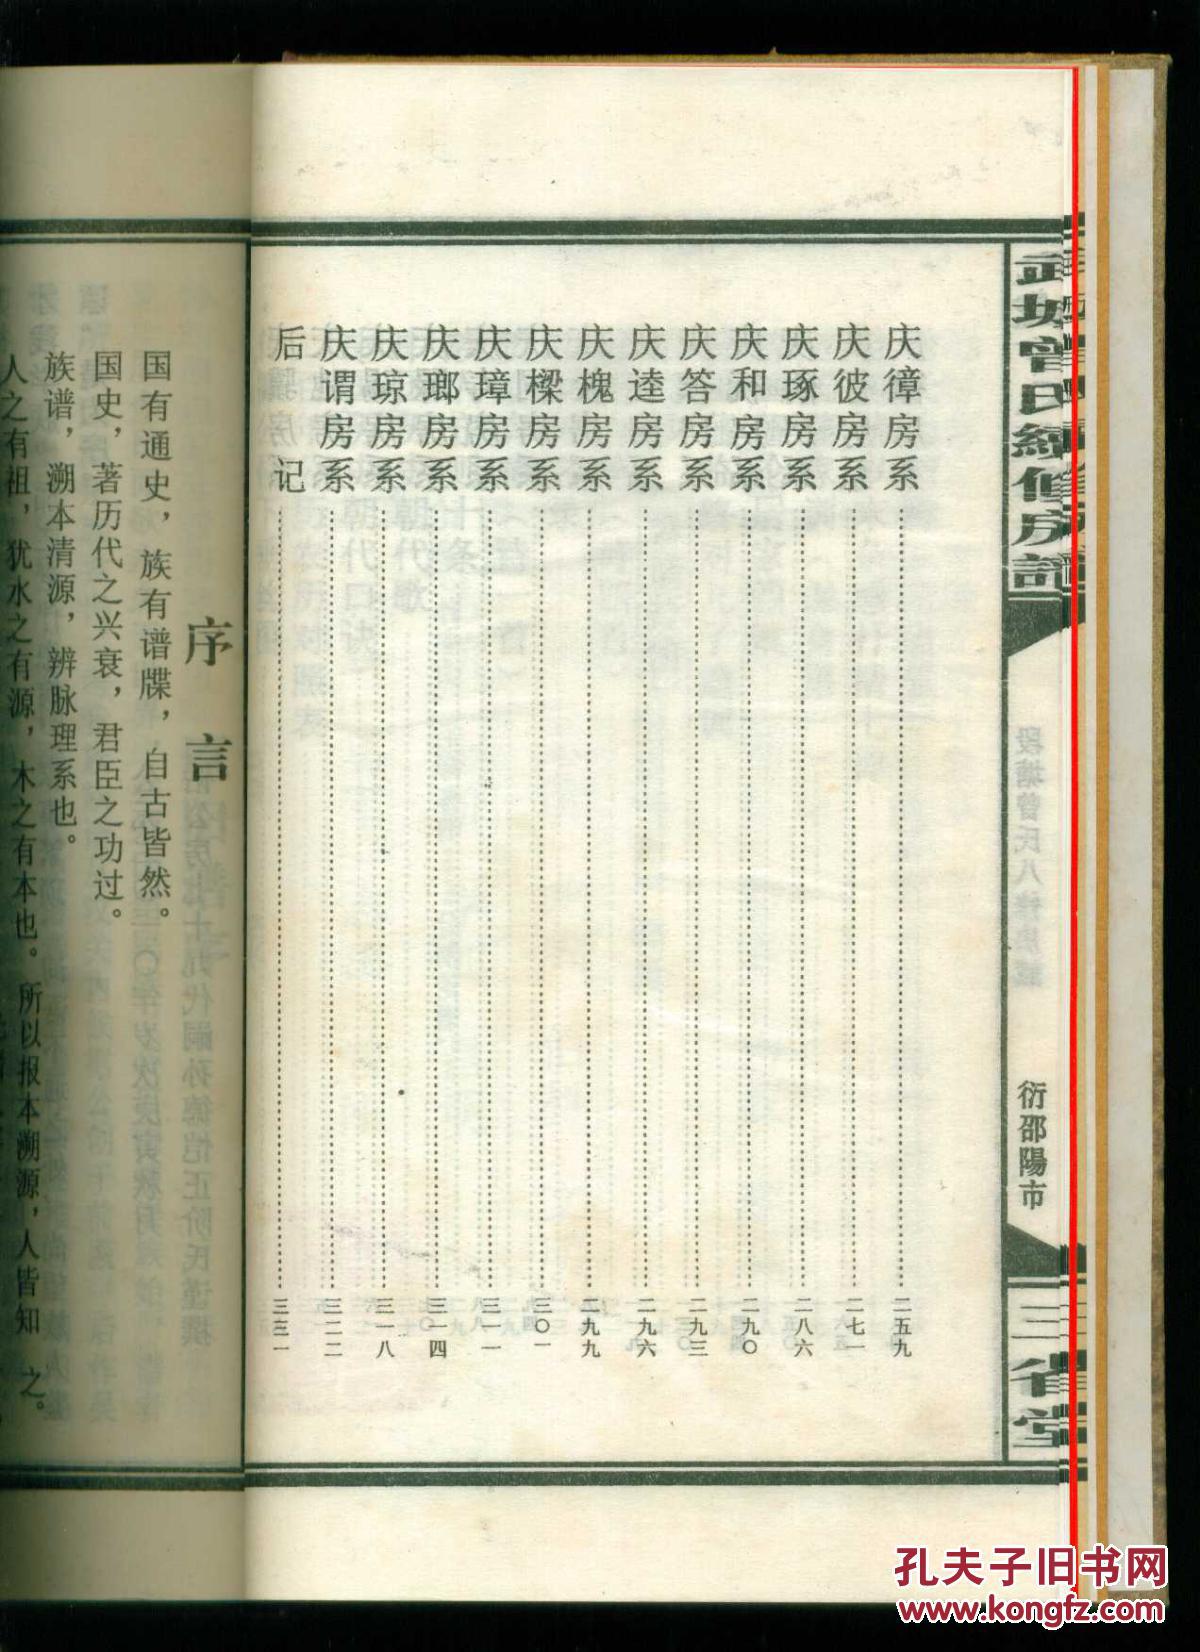 武城曾氏續修房譜
衍邵陽市
三省堂
庆徫房系 二五九
庆彼房系 二七一
庆琢房系 二八六
庆和房系 二九〇
庆答房系 二九三
庆逵房系 二九六
庆槐房系 二九九
庆樑房系 三〇一
庆璋房系 三一一
庆瑯房系 三一四
庆琼房系 三一八
庆谓房系 三二二
后记 三三一
序言
国有通史，族有谱牒，自古皆然。
国史，著历代之兴衰，君臣之功过。
族谱，溯本清源，辨脉理系也。
人之有祖，犹水之有源，木之有本也。所以报本溯源，人皆知之。
孔夫子旧书网
www.kongfz.com